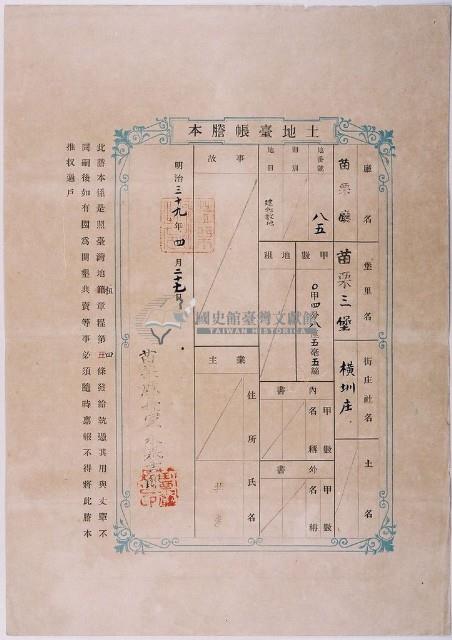 土地臺帳謄本
廳名
苗栗廳
堡里名
苗栗三堡
街庄社名
橫圳庄
土名
地番號
八五
則別
地目
建物敷地
甲數
〇甲四分八厘五毫五絲
地租
內書
甲數
名稱
外書
甲數
名稱
事故
業主
住所
氏名
明治三十九年四月二十七日
苗栗廳長
此謄本係是照臺灣地籍章程第四條發給就過其用與丈單不
同嗣後如有因為開墾典賣等事必須隨時稟報不得將此謄本
推收過戶
國史館臺灣文獻館
TAIWAN HISTORICA